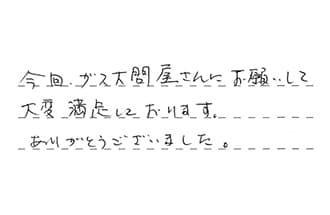 今回、ガス大問屋さんにお願いして
大変満足しております。
ありがとうございました。